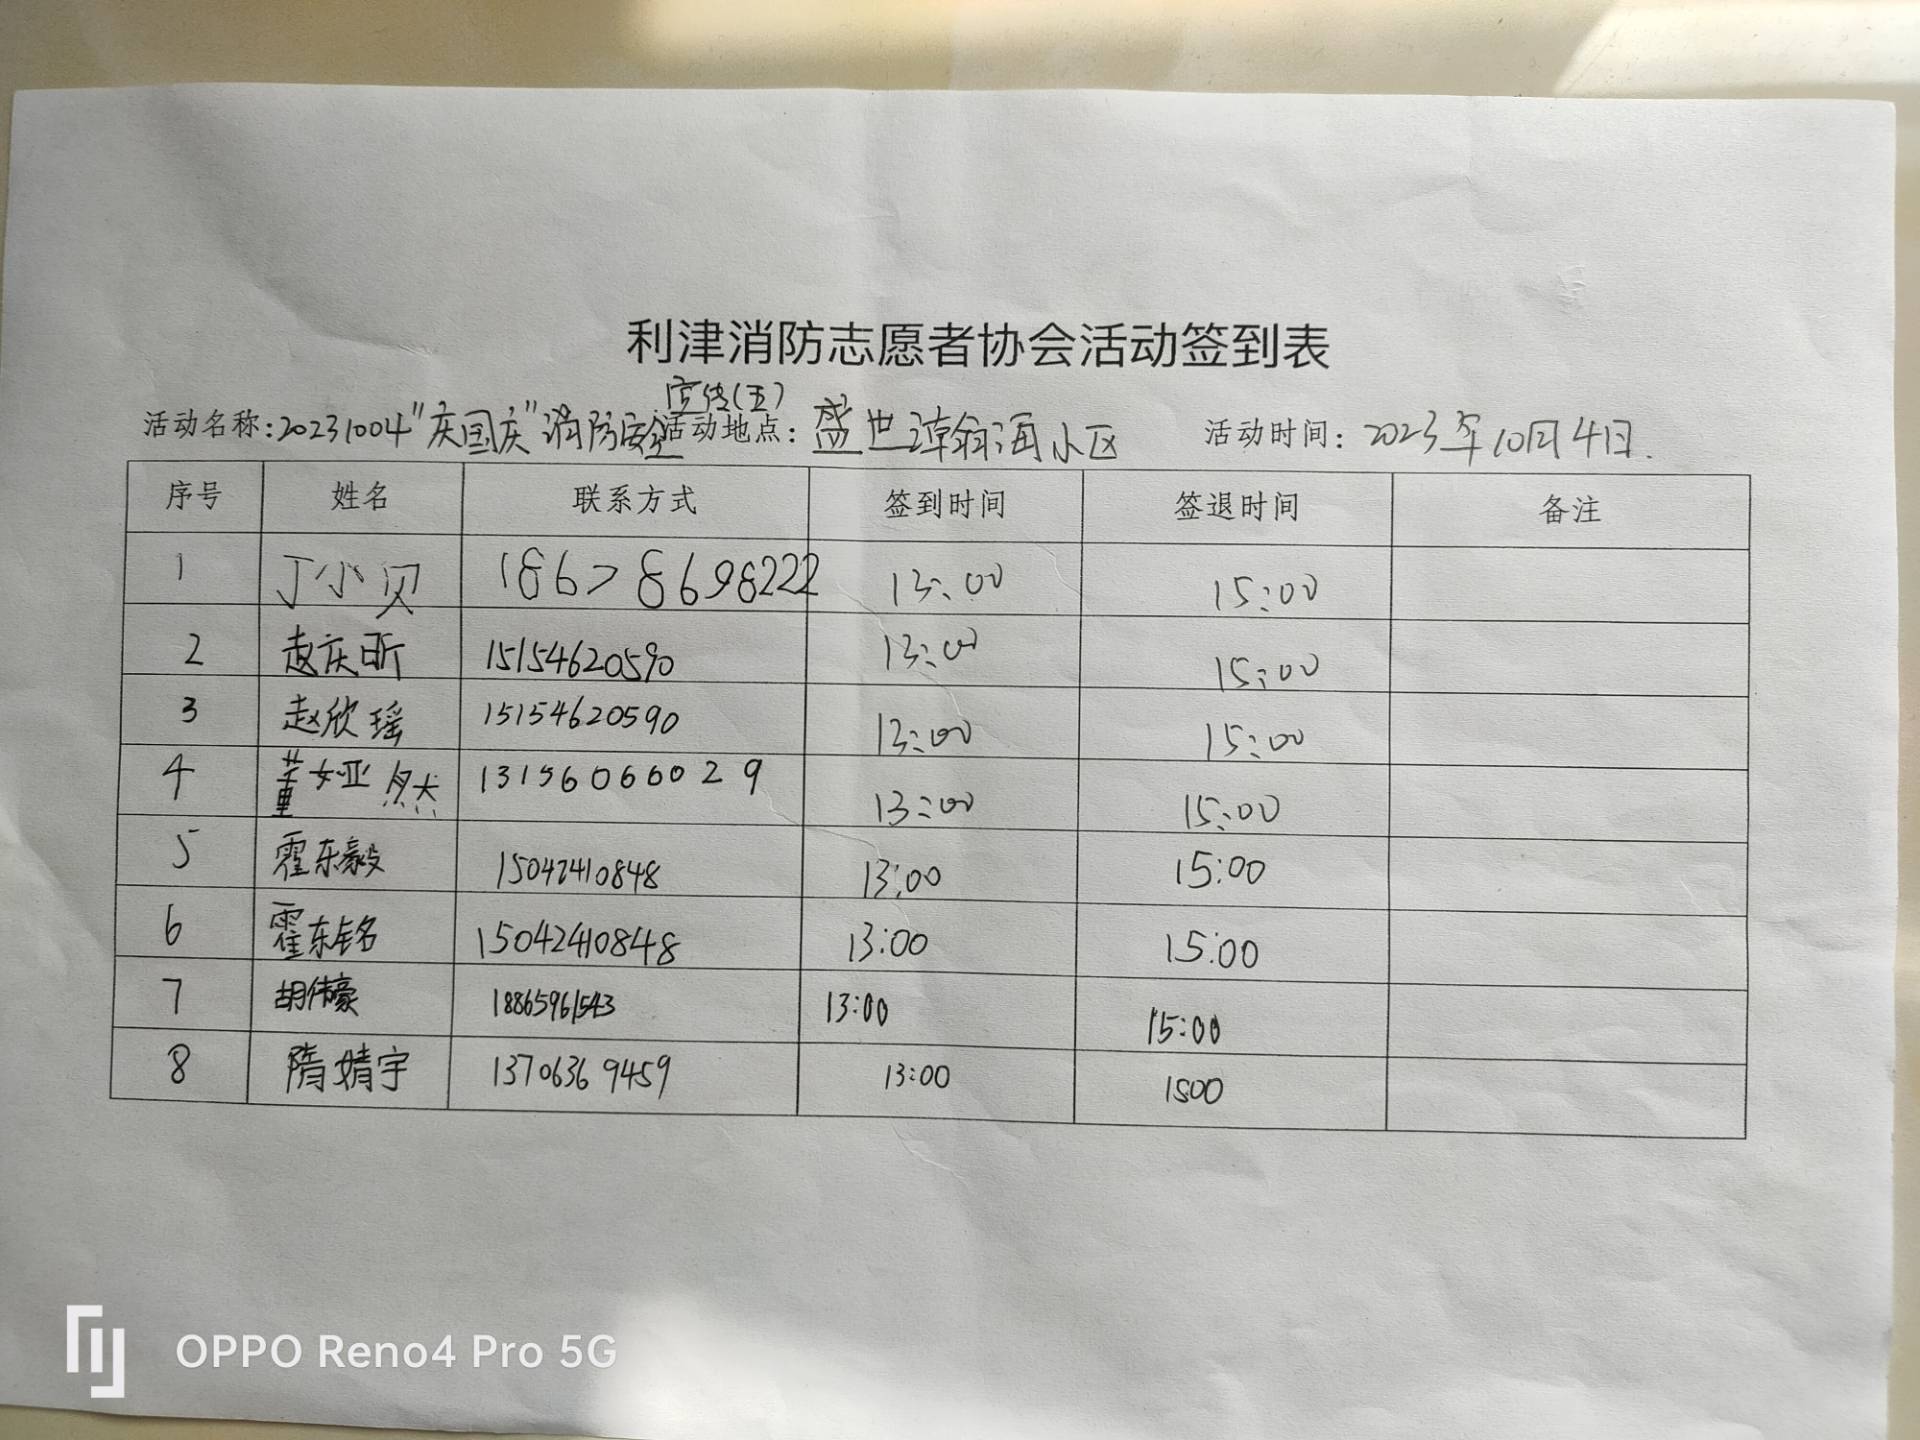 利津消防志愿者协会活动签到表
宣传(五)
活动名称:20231004"庆国庆"消防安全 活动地点:盛世瀚海小区 活动时间:2023年10月4日.
序号 姓名 联系方式 签到时间 签退时间 备注
1 丁小贝 18678698222 13:00 15:00
2 赵庆昕 15154620590 13:00 15:00
3 赵欣瑶 15154620590 13:00 15:00
4 董娅然 13156066029 13:00 15:00
5 霍东毅 15042410848 13:00 15:00
6 霍东铭 15042410848 13:00 15:00
7 胡伟豪 18865961543 13:00 15:00
8 隋婧宇 13706369459 13:00 1500
OPPO Reno4 Pro 5G